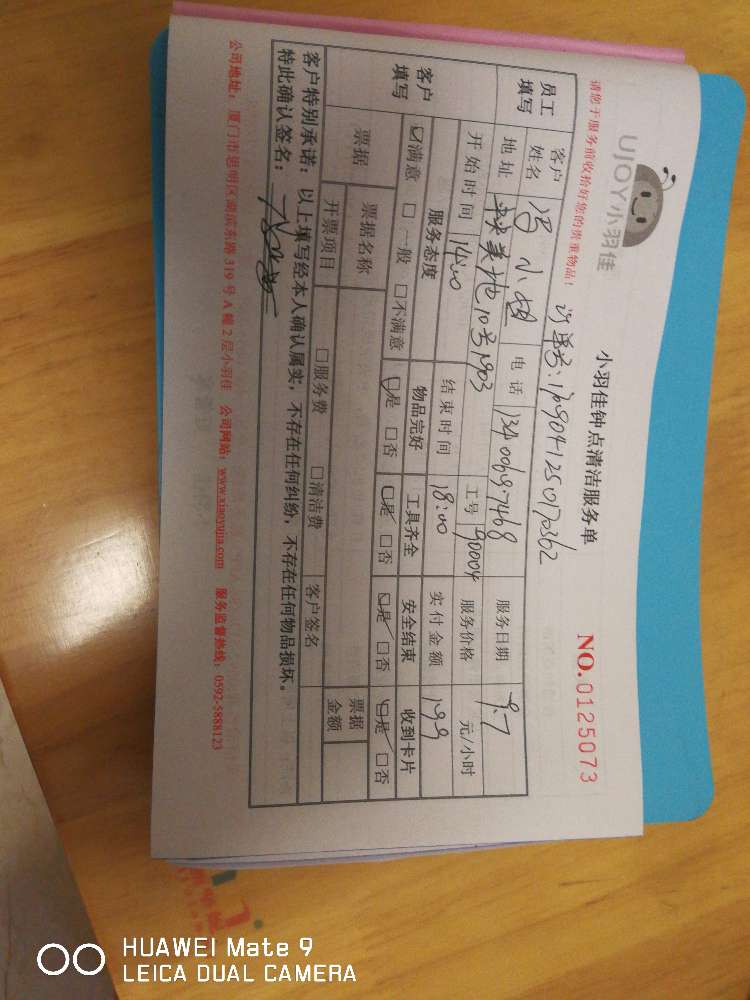 UJOY小羽佳
小羽佳钟点清洁服务单
NO.0125073
请您于服务前收拾好您的贵重物品!
员工填写
客户姓名 冯小姐 电话 13400697468 服务日期 9.7
地址 中央美地10号1903 工号 90004 服务价格 元/小时
开始时间 14:00 结束时间 18:00 实付金额 199
客户填写
服务态度 物品完好 工具齐全 安全结束 收到卡片
☑满意 □一般 □不满意 ☑是 □否 ☑是 □否 ☑是 □否 ☑是 □否
票据 票据名称 票据金额
开票项目 □服务费 □清洁费 客户签名
客户特别承诺:以上填写经本人确认属实,不存在任何纠纷,不存在任何物品损坏。
特此确认签名:
公司地址:厦门市思明区湖滨东路319号A幢2层小羽佳 公司网站:www.xiaoyujia.com 服务监督热线:0592-5888123
HUAWEI Mate 9
LEICA DUAL CAMERA